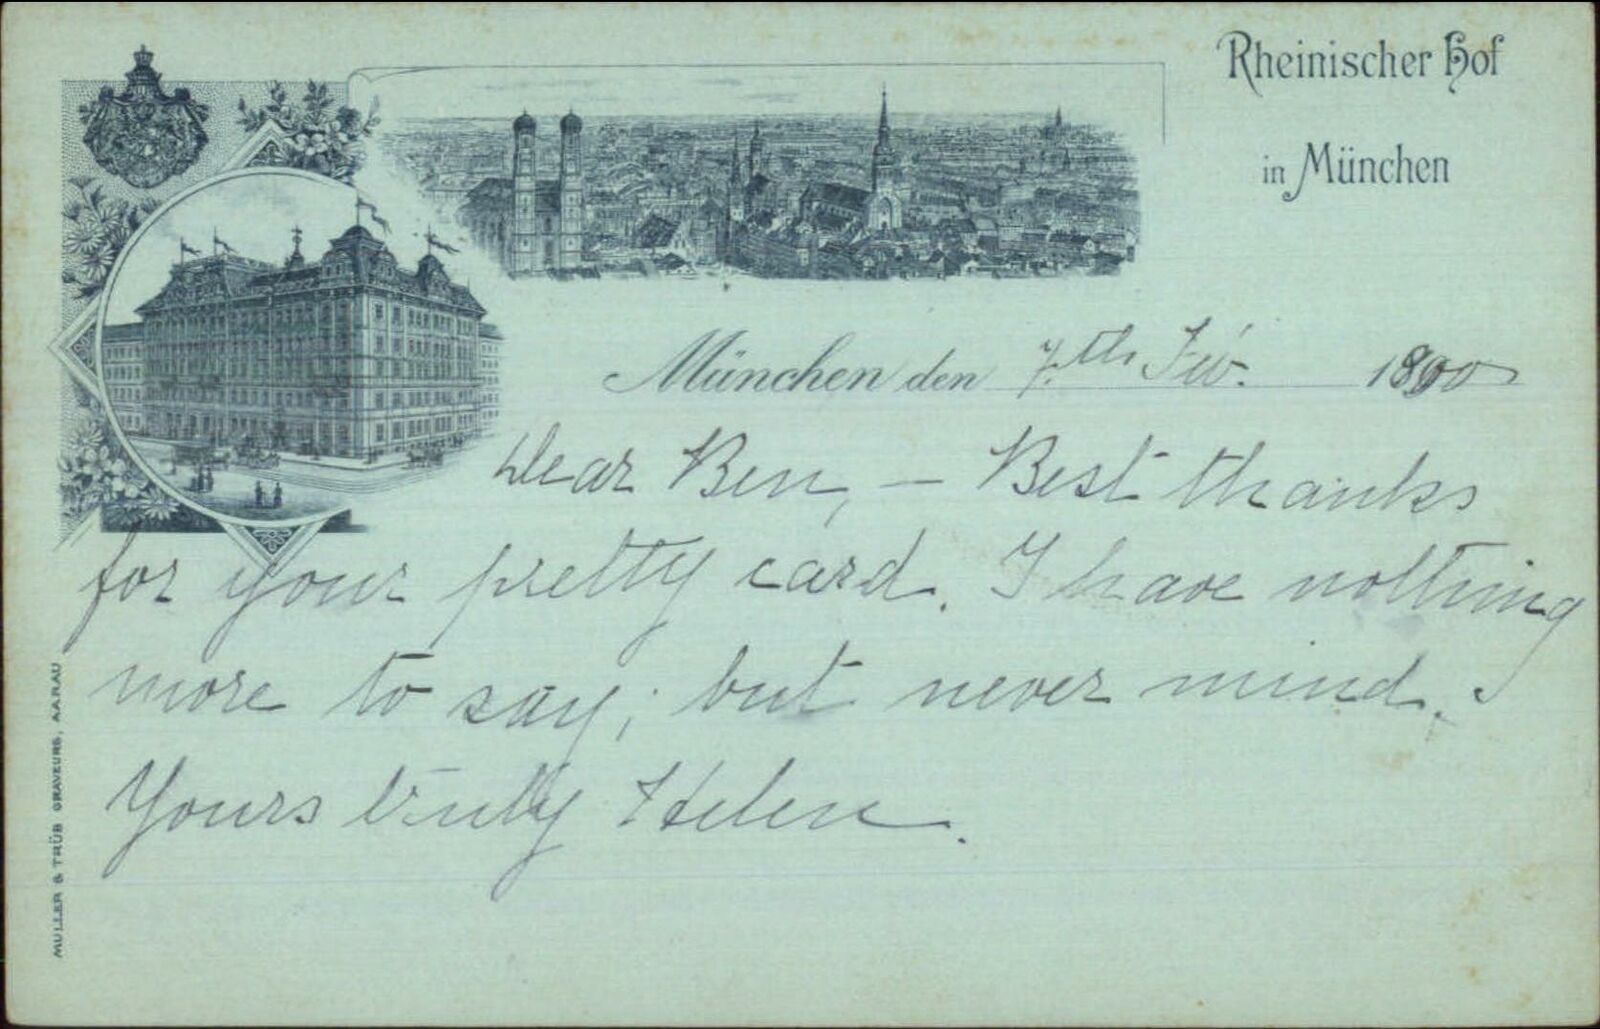 Rheinischer Hof
in München
München den 7.th Feb. 1900
Dear Ben, — Best thanks
for your pretty card. I have nothing
more to say; but never mind.
Yours truly Helen.
MULLER & TRÜB GRAVEURS, AARAU